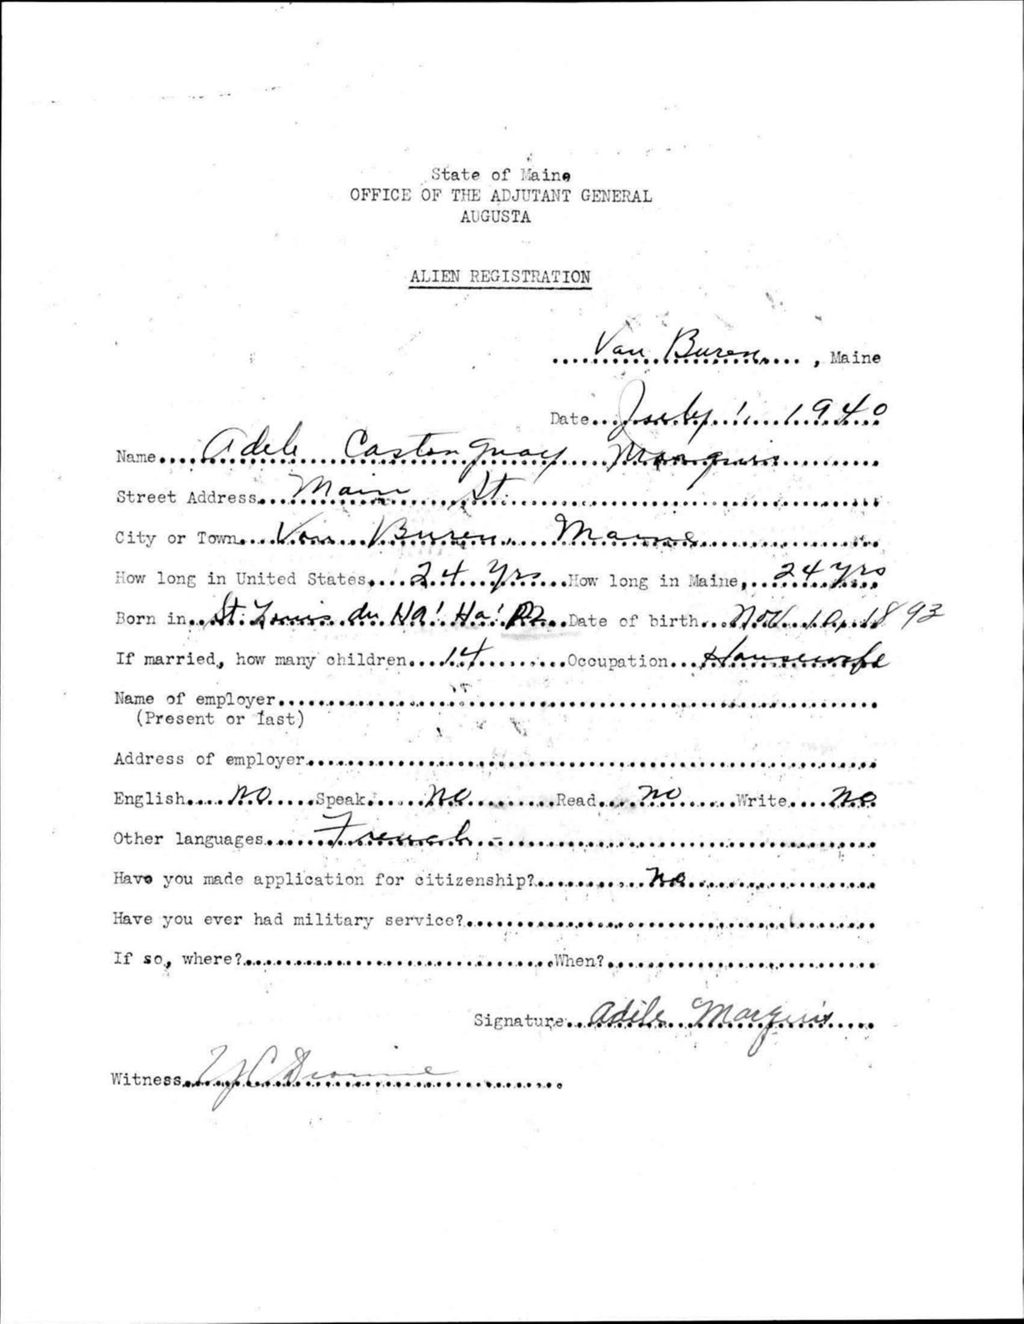 State of Maine
OFFICE OF THE ADJUTANT GENERAL
AUGUSTA
ALIEN REGISTRATION
Van Buren, Maine
Date July 1, 1940
Name Adele Castonguay Marquis
Street Address Main St.
City or Town Van Buren, Maine
How long in United States 24 yrs How long in Maine, 24 yrs
Born in St. Louis du Ha! Ha! P.Q. Date of birth Nov. 10, 1893
If married, how many children 14 Occupation Housewife
Name of employer
(Present or last)
Address of employer
English no Speak no Read no Write no
Other languages French -
Have you made application for citizenship? no
Have you ever had military service?
If so, where? When?
Signature Adele Marquis
Witness